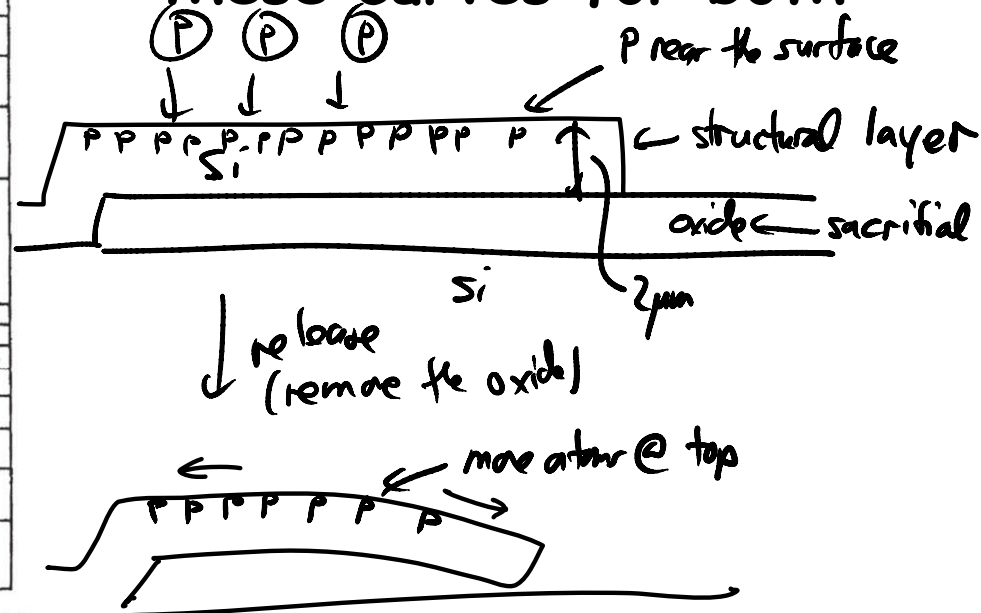 These curves for both
P P P
P near the surface
P P P P P P P P P P P P P
Si
structural layer
oxide
sacritial
Si
2μm
release
(remove the oxide)
more atoms @ top
P P P P P P P